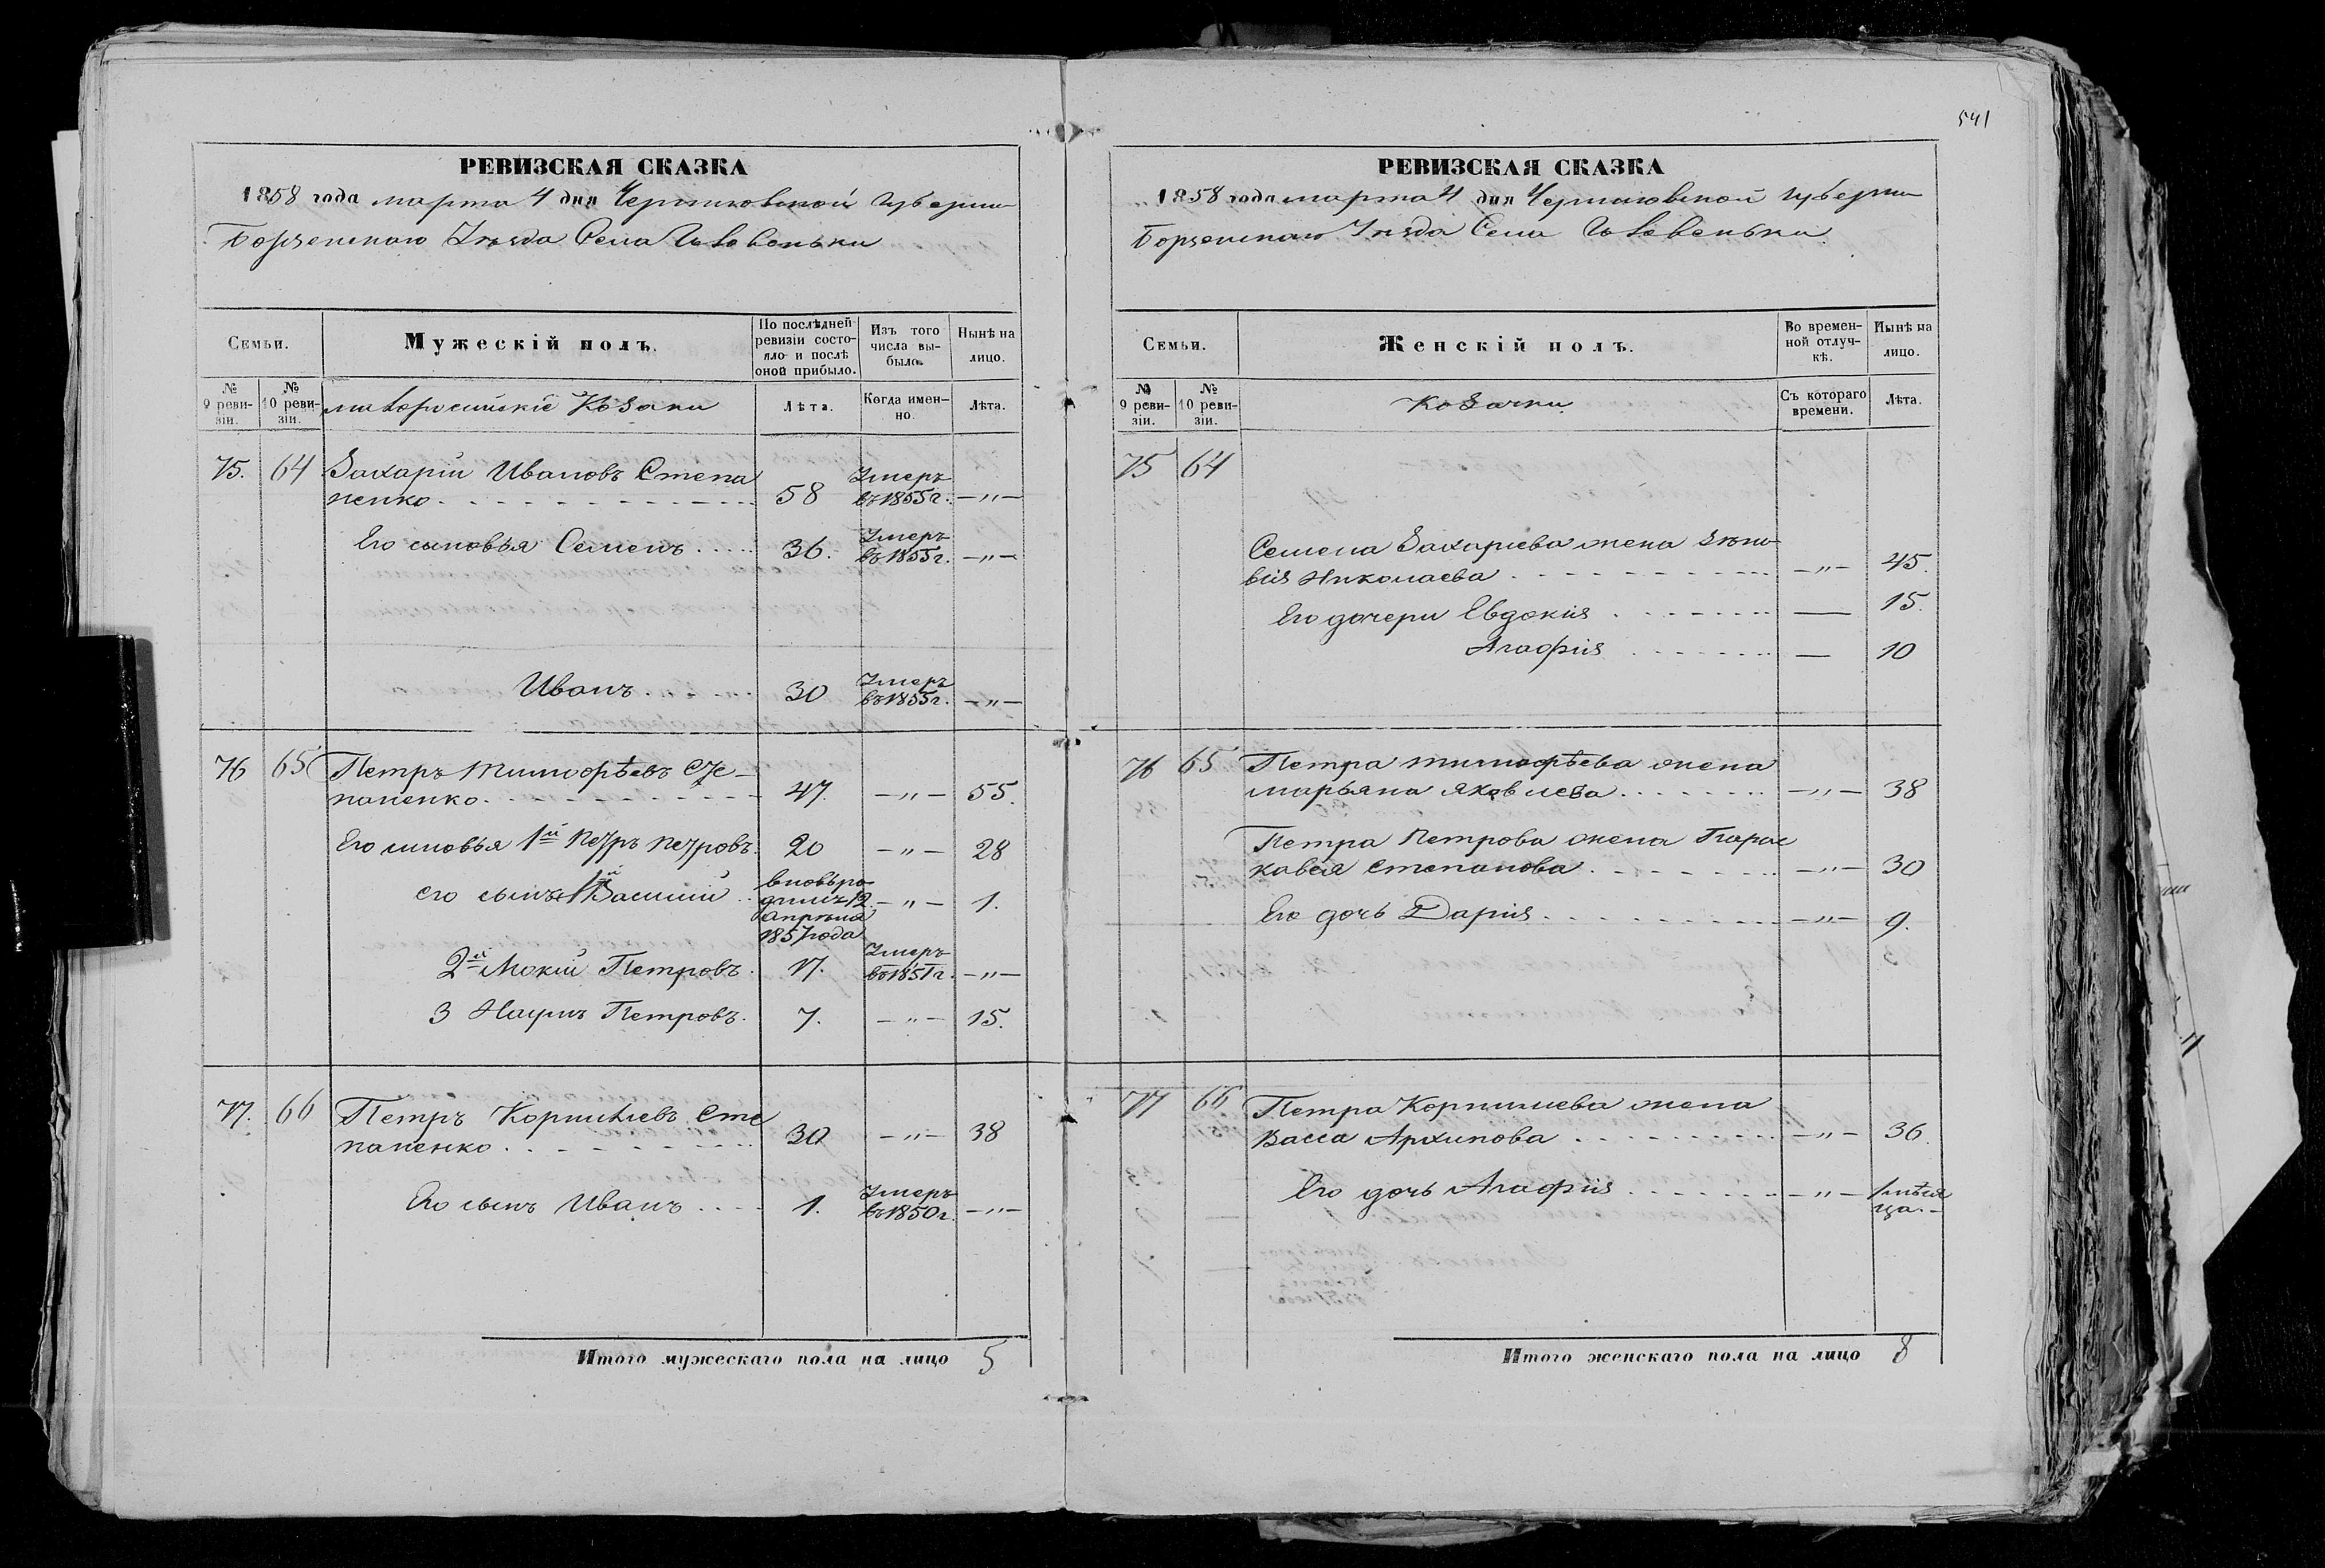 541
РЕВИЗСКАЯ СКАЗКА
1858 года марта 4 дня Черниговской Губернии
Борзенского Уезда Села Ивовеньки
Семьи.
Мужескій полъ.
По послѣдней ревизіи состояло и послѣ оной прибыло.
Изъ того числа выбыло.
Нынѣ на лицо.
№ 9 ревизіи.
№ 10 ревизіи.
малороссійскіе Козаки
Лѣта.
Когда именно.
Лѣта.
75. 64 Захарій Ивановъ Степа
ненко 58 Умеръ въ 1855 г. —"—
Его сыновья Семенъ 36. Умеръ въ 1855 г. —"—
Иванъ 30 Умеръ въ 1855 г. —"—
76 65 Петръ Тимофѣевъ Сте-
паненко 47. —"— 55.
Его сыновья 1й Петръ Петровъ 20 —"— 28
его сынъ 1й Василій вновь родился 12 апрѣля 1857 года —"— 1.
2й Мокій Петровъ 17. Умеръ въ 1851 г. —"—
3 Наумъ Петровъ 7. —"— 15.
77. 66 Петръ Корниліевъ Сте
паненко 30 —"— 38
Его сынъ Иванъ 1. Умеръ въ 1850 г. —"—
Итого мужескаго пола на лицо 5
РЕВИЗСКАЯ СКАЗКА
1858 года марта 4 дня Черниговской Губернии
Борзенского Уезда Села Ивовеньки
Семьи.
Женскій полъ.
Во временной отлучкѣ.
Нынѣ на лицо.
№ 9 ревизіи.
№ 10 ревизіи.
Козачки
Съ котораго времени.
Лѣта.
75 64
Семена Захариева жена Зѣно
вія Николаева —"— 45.
Его дочери Евдокія — 15.
Агафія — 10
76 65 Петра Тимофѣева жена
Марьяна Яковлева —"— 38
Петра Петрова жена Парас
ковея Степанова —"— 30
Его дочь Дарія —"— 9.
77 66 Петра Корнилиева жена
Васса Архипова —"— 36.
Его дочь Агафія —"— 1 мѣся
ца.-
Итого женскаго пола на лицо 8